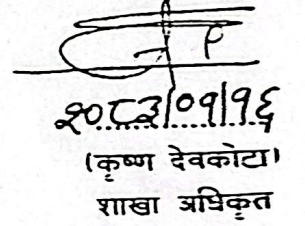 २०८३/०१/१६
(कृष्ण देवकोटा)
शाखा अधिकृत